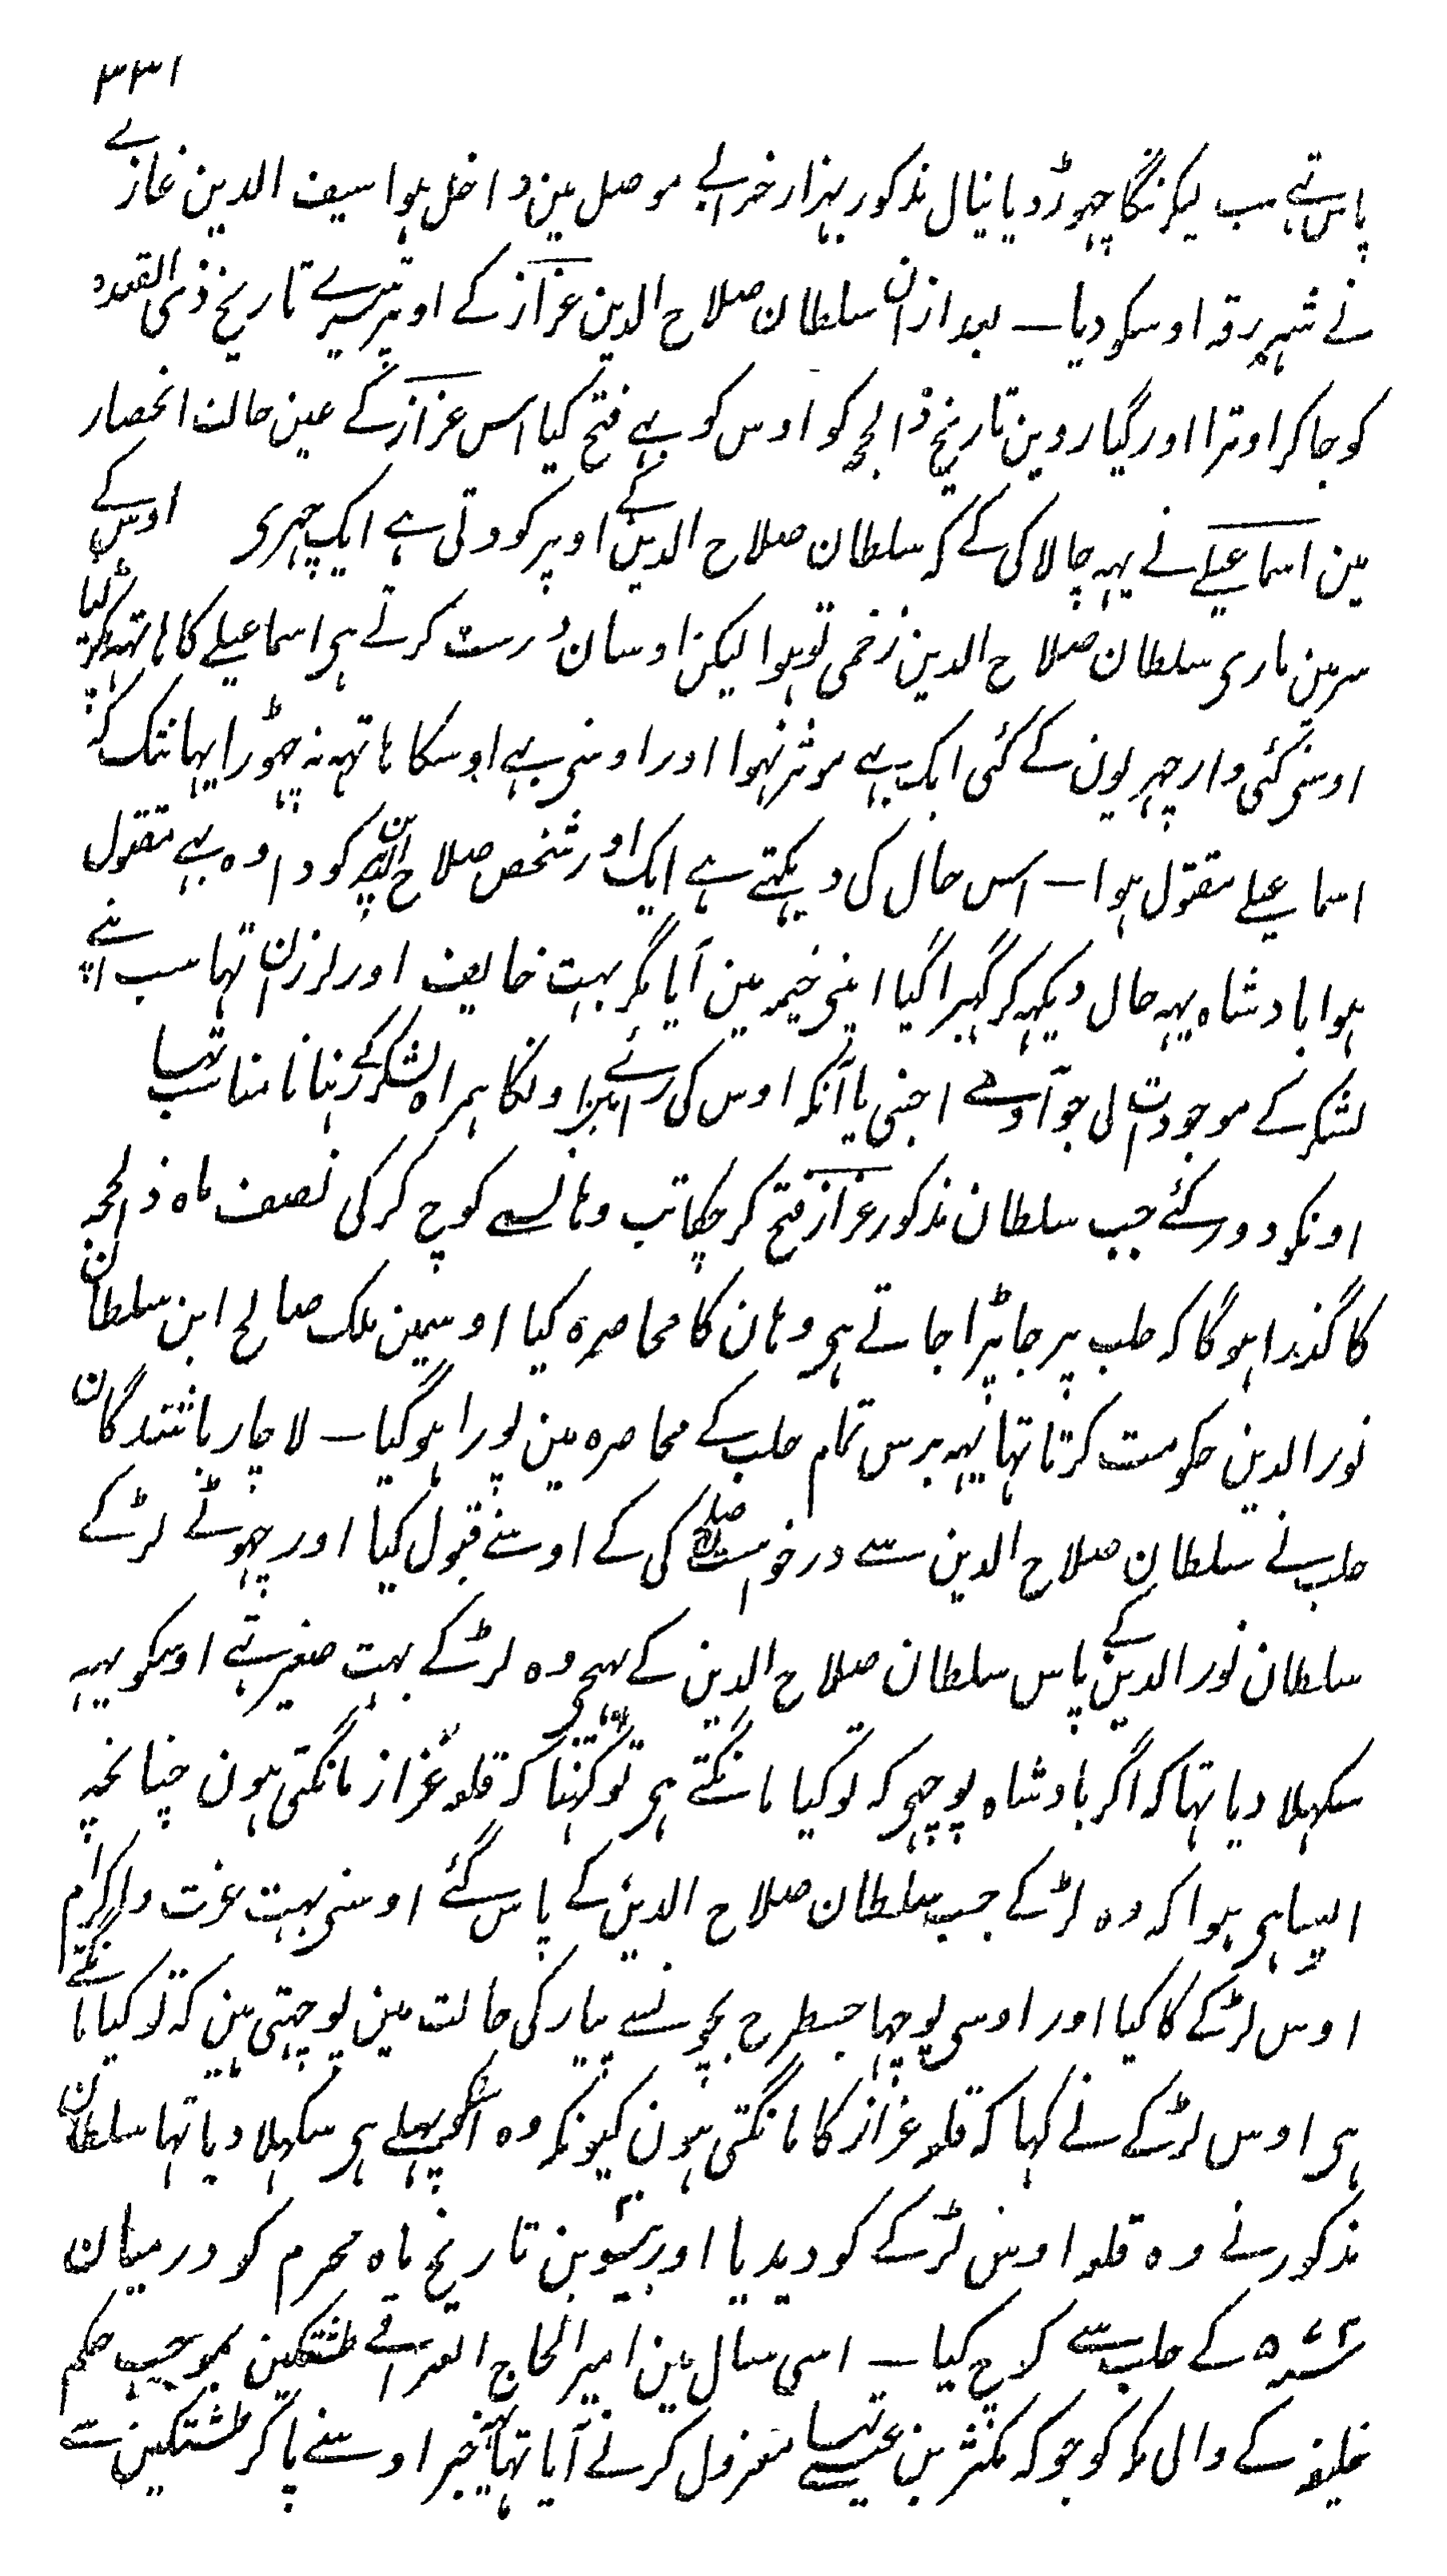 ۳۳۱
پاس تہے سب لیکر ننگا چہوڑ دیا نیال مذکور بہزار خرابے موصل مین داخل ہوا سیف الدین غازے
نے شہر رقہ اوسکو دیا ــ بعد ازان سلطان صلاح الدین عزاز کے اوپر تیسرے تاریخ ذی القعدہ
کو جاکر اوترا اور گیاروین تاریخ ذالحجہ کو اوس کو بہے فتح کیا اس عزاز کے عین حالت انحصار
مین اسماعیلے نے یہہ چالاکی کے کہ سلطان صلاح الدین کے اوپر کودتی ہے ایک چہری اوس کے
سر مین ماری سلطان صلاح الدین زخمی تو ہوا لیکن اوسان درست کرتے ہی اسماعیلے کا ہاتہہ پکڑ لیا
اوسنی کئی وار چہریون کے کئی ایک بہے موثر نہوا اور اوسنی بہے اوسکا ہاتہہ نہ چھوڑا یہانتک کہ
اسماعیلے مقتول ہوا ــ اس حال کی دیکہتے ہے ایک اور شخص صلاح الدین پر کودا وہ بہے مقتول
ہوا بادشاہ یہہ حال دیکہہ کر گہبرا گیا اپنی خیمہ مین آیا مگر بہت خایف اور لرزان تہا سب اپنے
لشکر کے موجودات لی جو آدمے اجنبی یا آنکہ اوس کی رائے مین اونکا ہمراہ لشکر کے رہنا نامناسب تہا
اونکو دور کئے جب سلطان مذکور عزاز فتح کر چکا تب وہانسے کوچ کر کی نصف ماہ ذالحجہ
کا گذرا ہوگا کہ حلب پر جا پڑا جاتے ہی وہان کا محاصرہ کیا اوسمین ملک صالح ابن سلطان
نور الدین حکومت کرتا تہا یہہ برس تمام حلب کے محاصرہ مین پورا ہوگیا ــ لاچار باشندگان
حلب نے سلطان صلاح الدین سے درخواست صلح کی کے اوسنے قبول کیا اور چہوٹے لڑکے
سلطان نور الدین کے پاس سلطان صلاح الدین کے بہیجے وہ لڑکے بہت صغیر تہے اوسکو یہہ
سکہلا دیا تہا کہ اگر بادشاہ پوچہی کہ تو کیا مانگتے ہی تو کہنا کہ قلعہ عزاز مانگتی ہون چنانچہ
ایسا ہی ہوا کہ وہ لڑکے جب سلطان صلاح الدین کے پاس گئے اوسنی بہت عزت واکرام
اوس لڑکے کا کیا اور اوسی پوچہا جسطرح بچونسے پیار کی حالت مین پوچہتی ہین کہ تو کیا مانگتے
ہی اوس لڑکے نے کہا کہ قلعہ عزاز کا مانگتی ہون کیونکہ وہ اسکو پہلے ہی سکہلا دیا تہا سلطان
مذکور نے وہ قلعہ اوس لڑکے کو دیدیا اور بیسوین تاریخ ماہ محرم کو درمیان
سنہ ۵۷۲ ہ کے حلب سے کوچ کیا ــ اسی سال مین امیر الحاج العراقے طشتکین بموجب حکم
خلیفہ کے والی مکہ کو جو کہ مکثر بن عیسے تہا معزول کرنے آیا تہا یہہ خبر اوسنے پاکر طشتکین سے